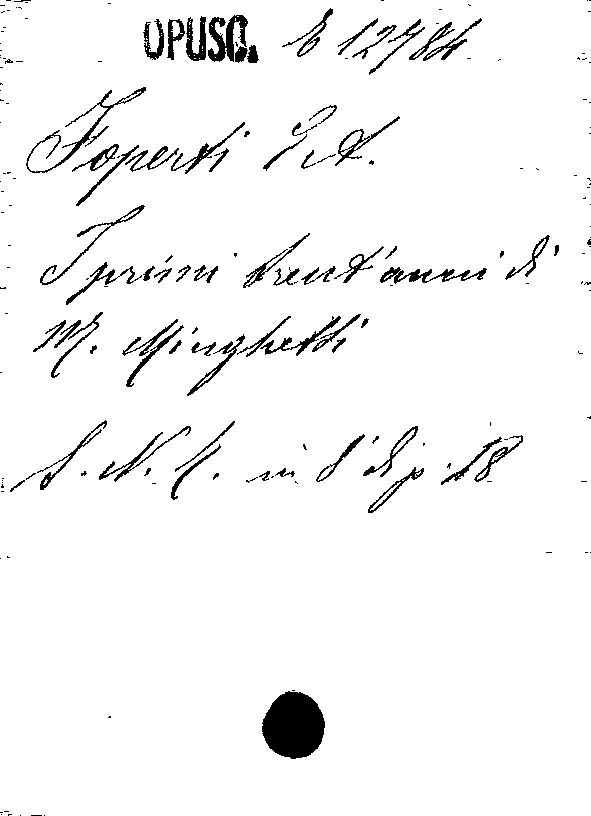 OPUSC. E 12784
Foperti E. A.
I primi trent'anni di
M. Minghetti
S. N. T. in 8° di p. 18